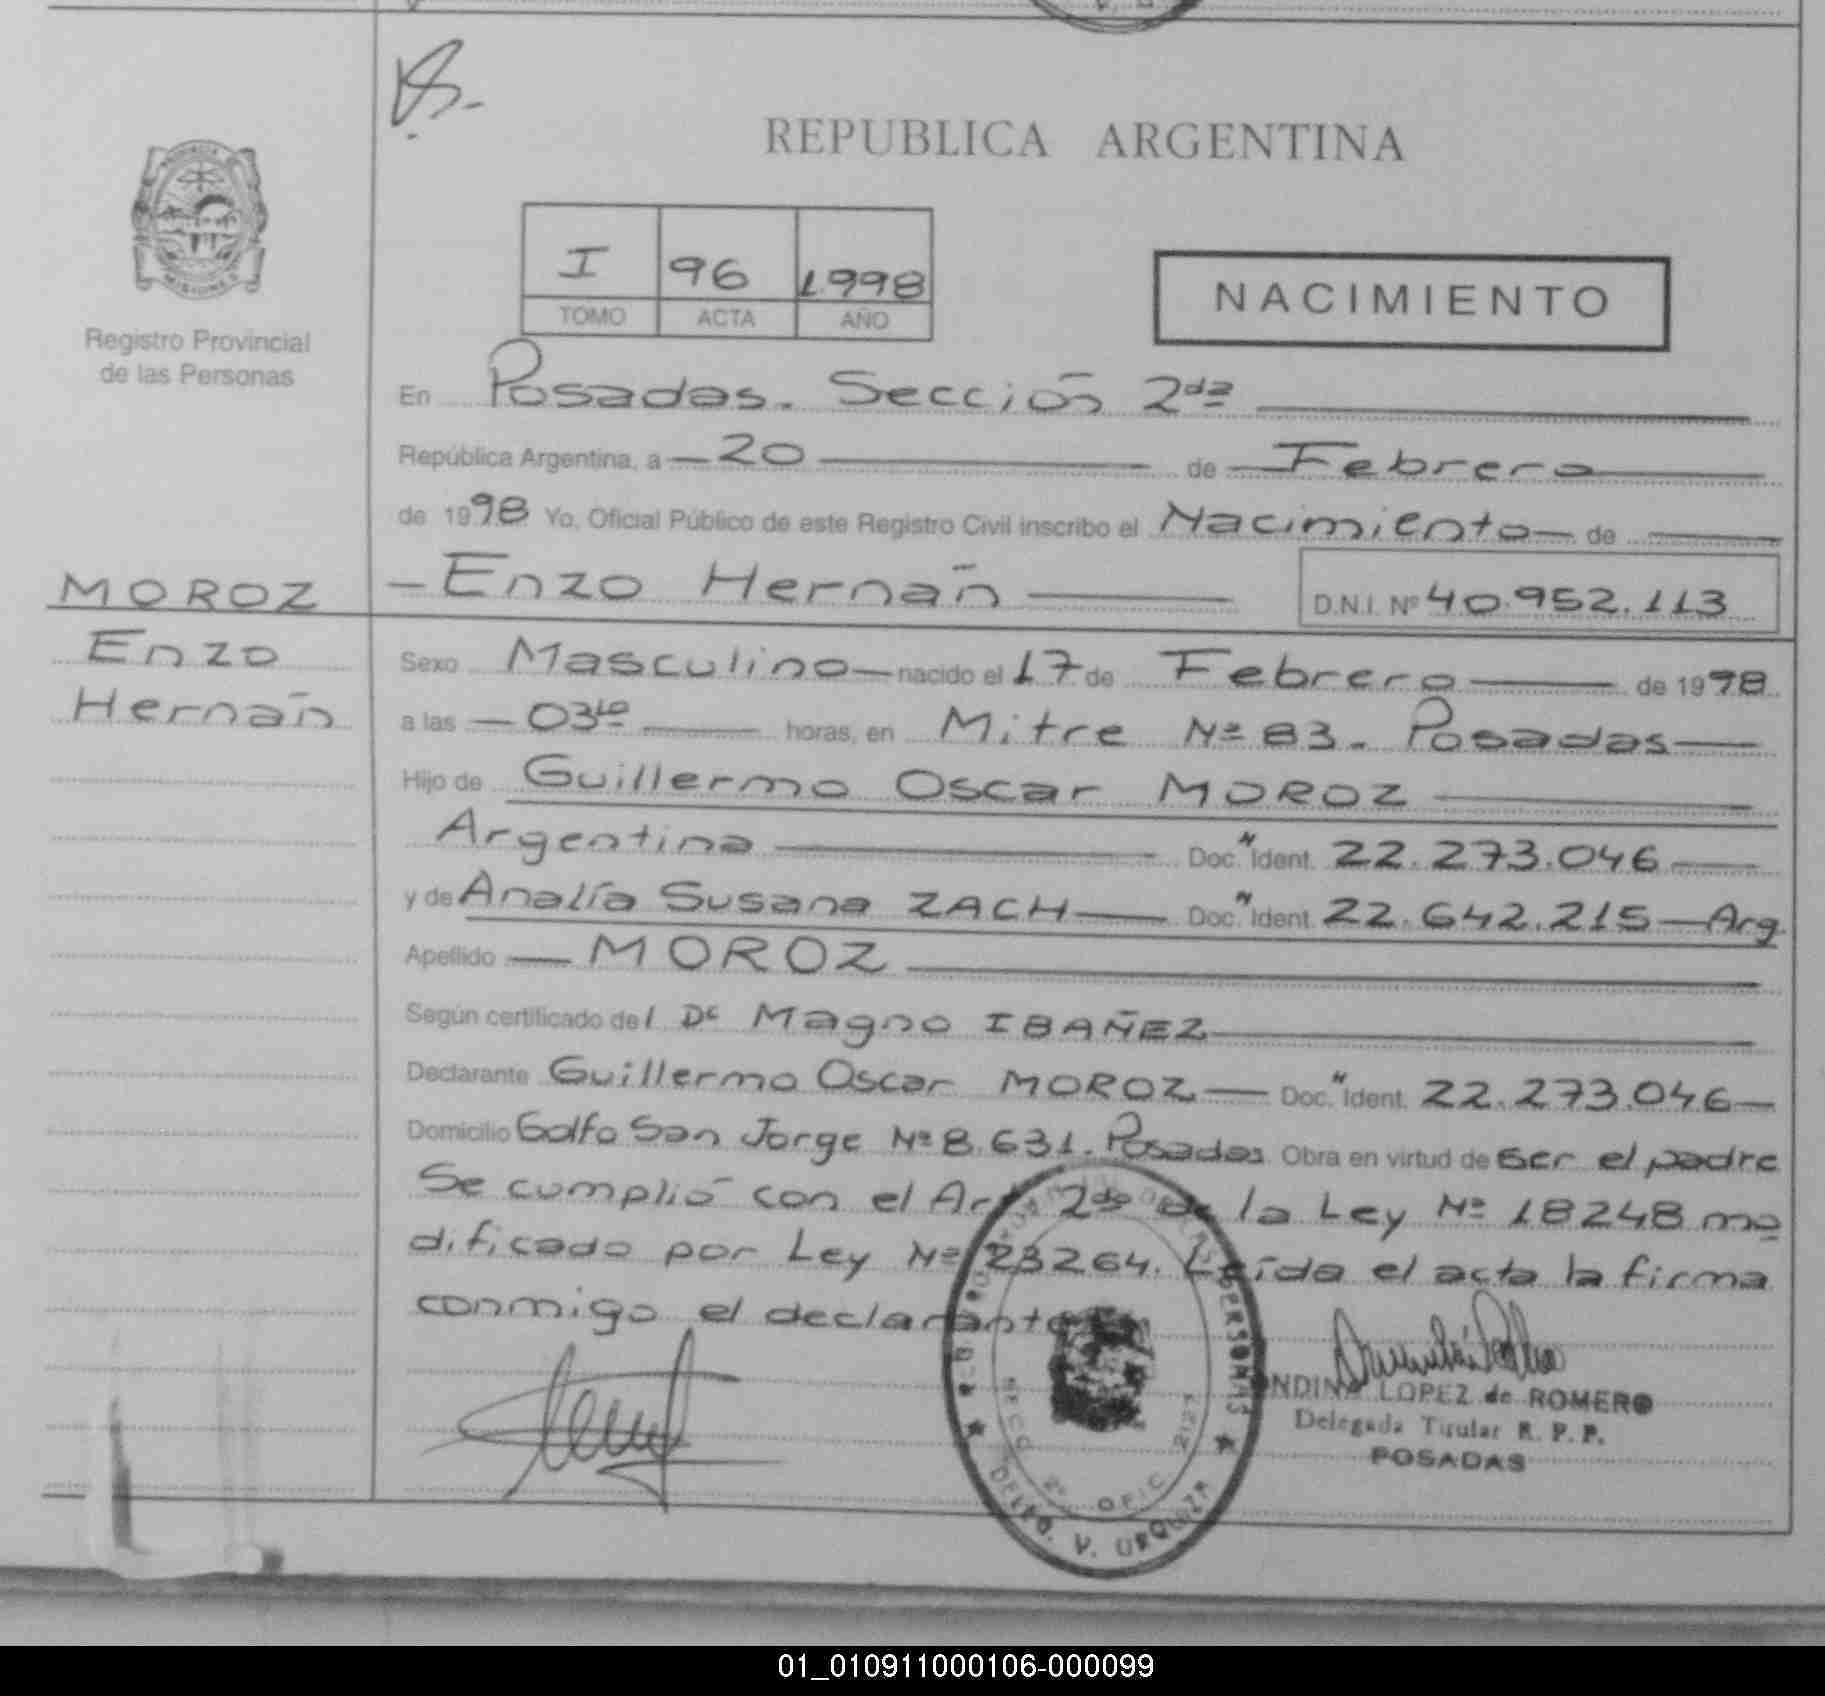 REPUBLICA ARGENTINA
I 96 1998
TOMO ACTA AÑO
NACIMIENTO
Registro Provincial
de las Personas
En Posadas. Sección 2da
República Argentina, a 20 de Febrero
de 1998 Yo, Oficial Público de este Registro Civil inscribo el Nacimiento de
MOROZ
Enzo
Hernán
Enzo Hernán D.N.I. Nº 40.952.113
Sexo Masculino nacido el 17 de Febrero de 1998
a las 03 horas, en Mitre Nº 83. Posadas
Hijo de Guillermo Oscar MOROZ
Argentina Doc. Ident. 22.273.046
y de Analía Susana ZACH Doc. Ident. 22.642.215 Arg
Apellido MOROZ
Según certificado del Magno IBAÑEZ
Declarante Guillermo Oscar MOROZ Doc. Ident. 22.273.046
Domicilio Golfo San Jorge Nº 8.631. Posadas Obra en virtud de ser el padre
Se cumplió con el Art 2do de la Ley Nº 18248 mo
dificado por Ley Nº 23264. Leída el acta la firma
conmigo el declarante
LOPEZ de ROMERO
Delegada Titular R. P. P.
POSADAS
DE LAS PERSONAS
SECC 2º OFIC 2127
DELEG. V. URQUIZA
01_010911000106-000099